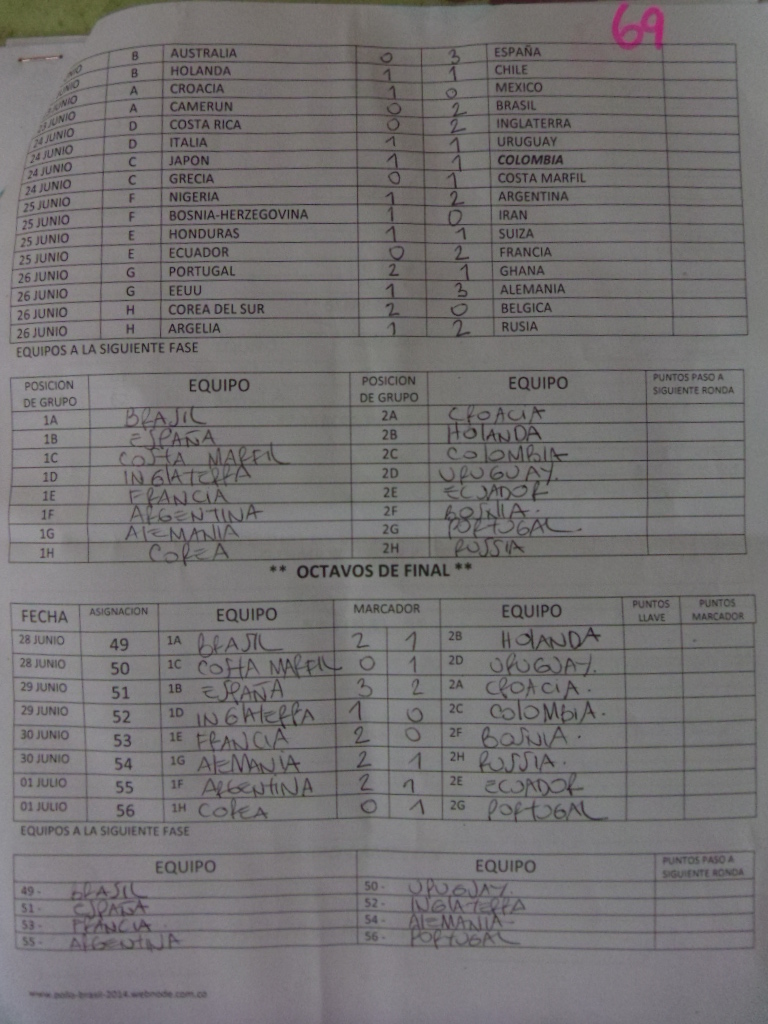 69
B AUSTRALIA 0 3 ESPAÑA
B HOLANDA 1 1 CHILE
JUNIO A CROACIA 1 0 MEXICO
JUNIO A CAMERUN 0 2 BRASIL
24 JUNIO D COSTA RICA 0 2 INGLATERRA
24 JUNIO D ITALIA 1 1 URUGUAY
24 JUNIO C JAPON 1 1 COLOMBIA
24 JUNIO C GRECIA 0 1 COSTA MARFIL
25 JUNIO F NIGERIA 1 2 ARGENTINA
25 JUNIO F BOSNIA-HERZEGOVINA 1 0 IRAN
25 JUNIO E HONDURAS 1 1 SUIZA
25 JUNIO E ECUADOR 0 2 FRANCIA
26 JUNIO G PORTUGAL 2 1 GHANA
26 JUNIO G EEUU 1 3 ALEMANIA
26 JUNIO H COREA DEL SUR 2 0 BELGICA
26 JUNIO H ARGELIA 1 2 RUSIA
EQUIPOS A LA SIGUIENTE FASE
POSICION DE GRUPO EQUIPO POSICION DE GRUPO EQUIPO PUNTOS PASO A SIGUIENTE RONDA
1A BRASIL 2A CROACIA
1B ESPAÑA 2B HOLANDA
1C COSTA MARFIL 2C COLOMBIA
1D INGlATERRA 2D URUGUAY.
1E FRANCIA 2E ECUADOR
1F ARGENTINA 2F BOSNIA.
1G AlEMANIA 2G PORTUGAL.
1H COREA 2H RUSSIA
** OCTAVOS DE FINAL **
FECHA ASIGNACION EQUIPO MARCADOR EQUIPO PUNTOS LLAVE PUNTOS MARCADOR
28 JUNIO 49 1A BRASIL 2 1 2B HOLANDA
28 JUNIO 50 1C COSTA MARFIL 0 1 2D URUGUAY.
29 JUNIO 51 1B ESPAÑA 3 2 2A CROACIA.
29 JUNIO 52 1D INGlATERRA 1 0 2C COLOMBIA.
30 JUNIO 53 1E FRANCIA 2 0 2F BOSNIA.
30 JUNIO 54 1G AlEMANIA 2 1 2H RUSSIA.
01 JULIO 55 1F ARGENTINA 2 1 2E ECUADOR
01 JULIO 56 1H COREA 0 1 2G PORTUGAL
EQUIPOS A LA SIGUIENTE FASE
EQUIPO EQUIPO PUNTOS PASO A SIGUIENTE RONDA
49 - BRASIL 50 - URUGUAY.
51 - ESPAÑA 52 - INGlATERRA
53 - FRANCIA 54 - AlEMANIA-
55 - ARGENTINA 56 - PORTUGAL
www.polla-brasil-2014.webnode.com.co